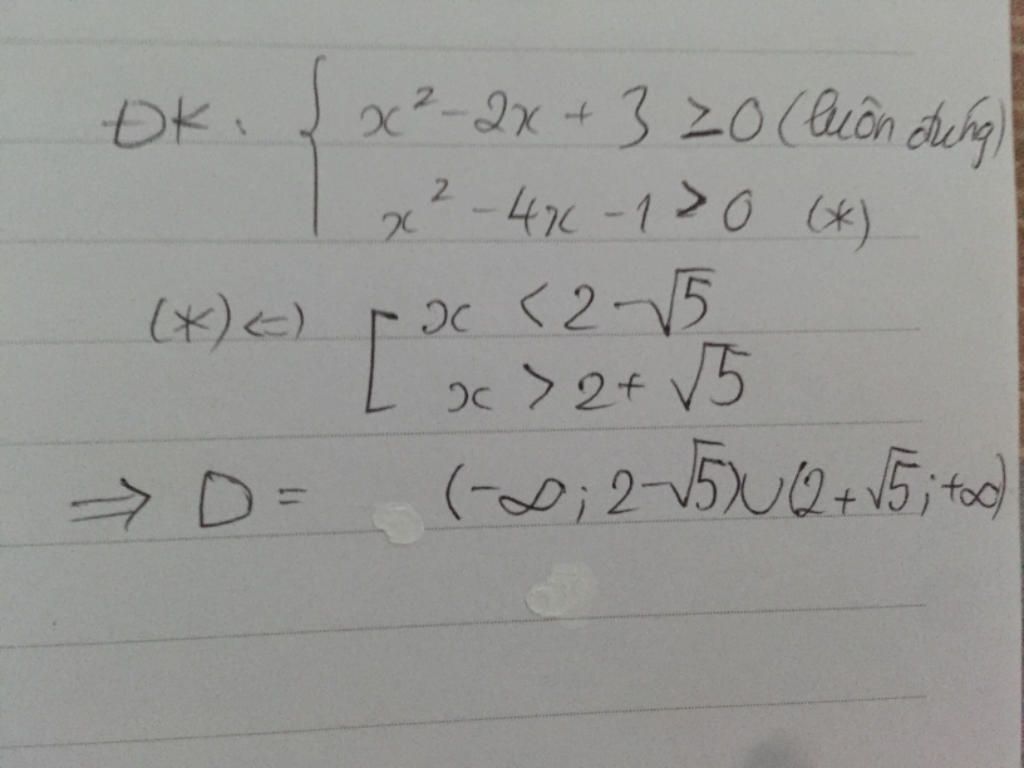 ĐK: { x² - 2x + 3 ≥ 0 (luôn đúng)
x² - 4x - 1 > 0 (*)
(*) ⇔ [ x < 2 - √5
x > 2 + √5
⇒ D = (-∞; 2 - √5) ∪ (2 + √5; +∞)